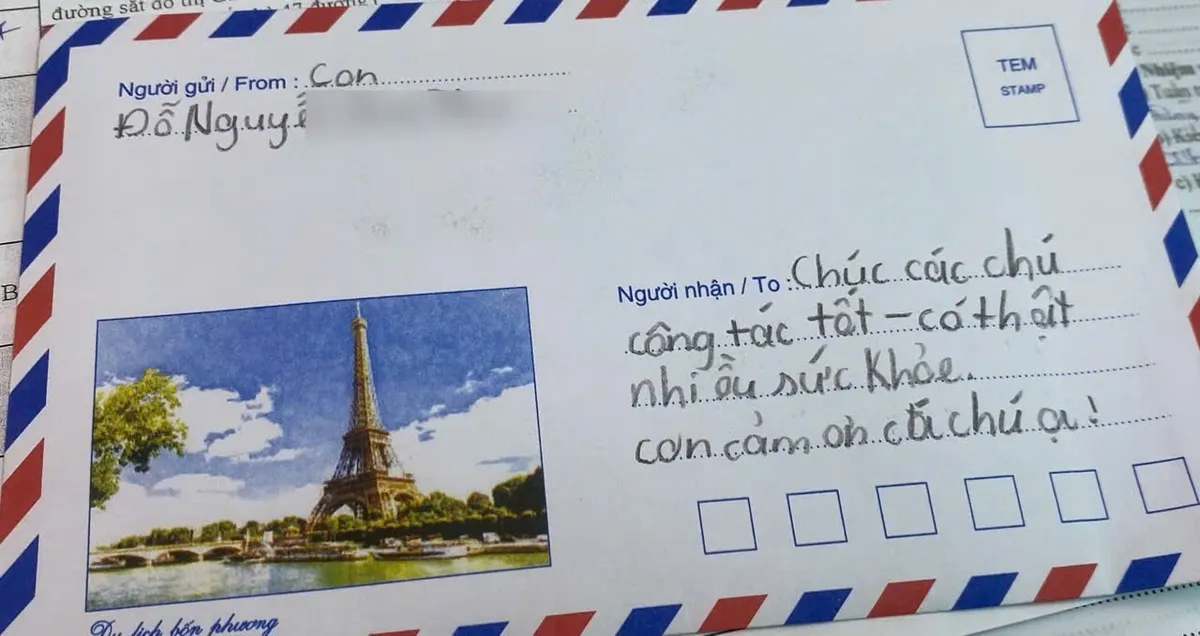 đường sắt đô thị
Người gửi / From : Con
Đỗ Nguyễ
TEM
STAMP
Người nhận / To : Chúc các chú
công tác tốt - có thật
nhiều sức khỏe.
con cảm ơn các chú ạ!
Du lịch bốn phương
Nhiệm
Tuần
B